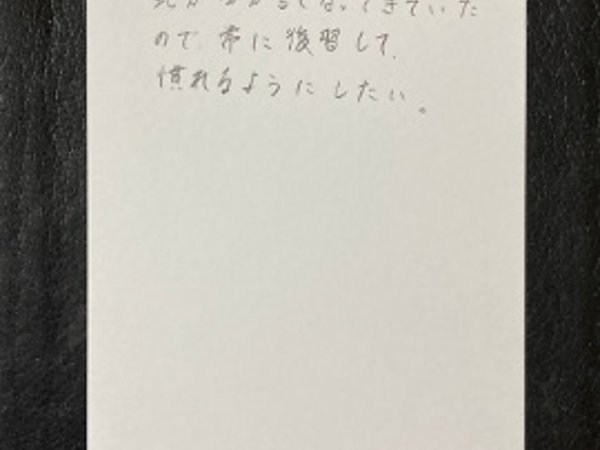 なってきていた
ので、常に復習して、
慣れるようにしたい。